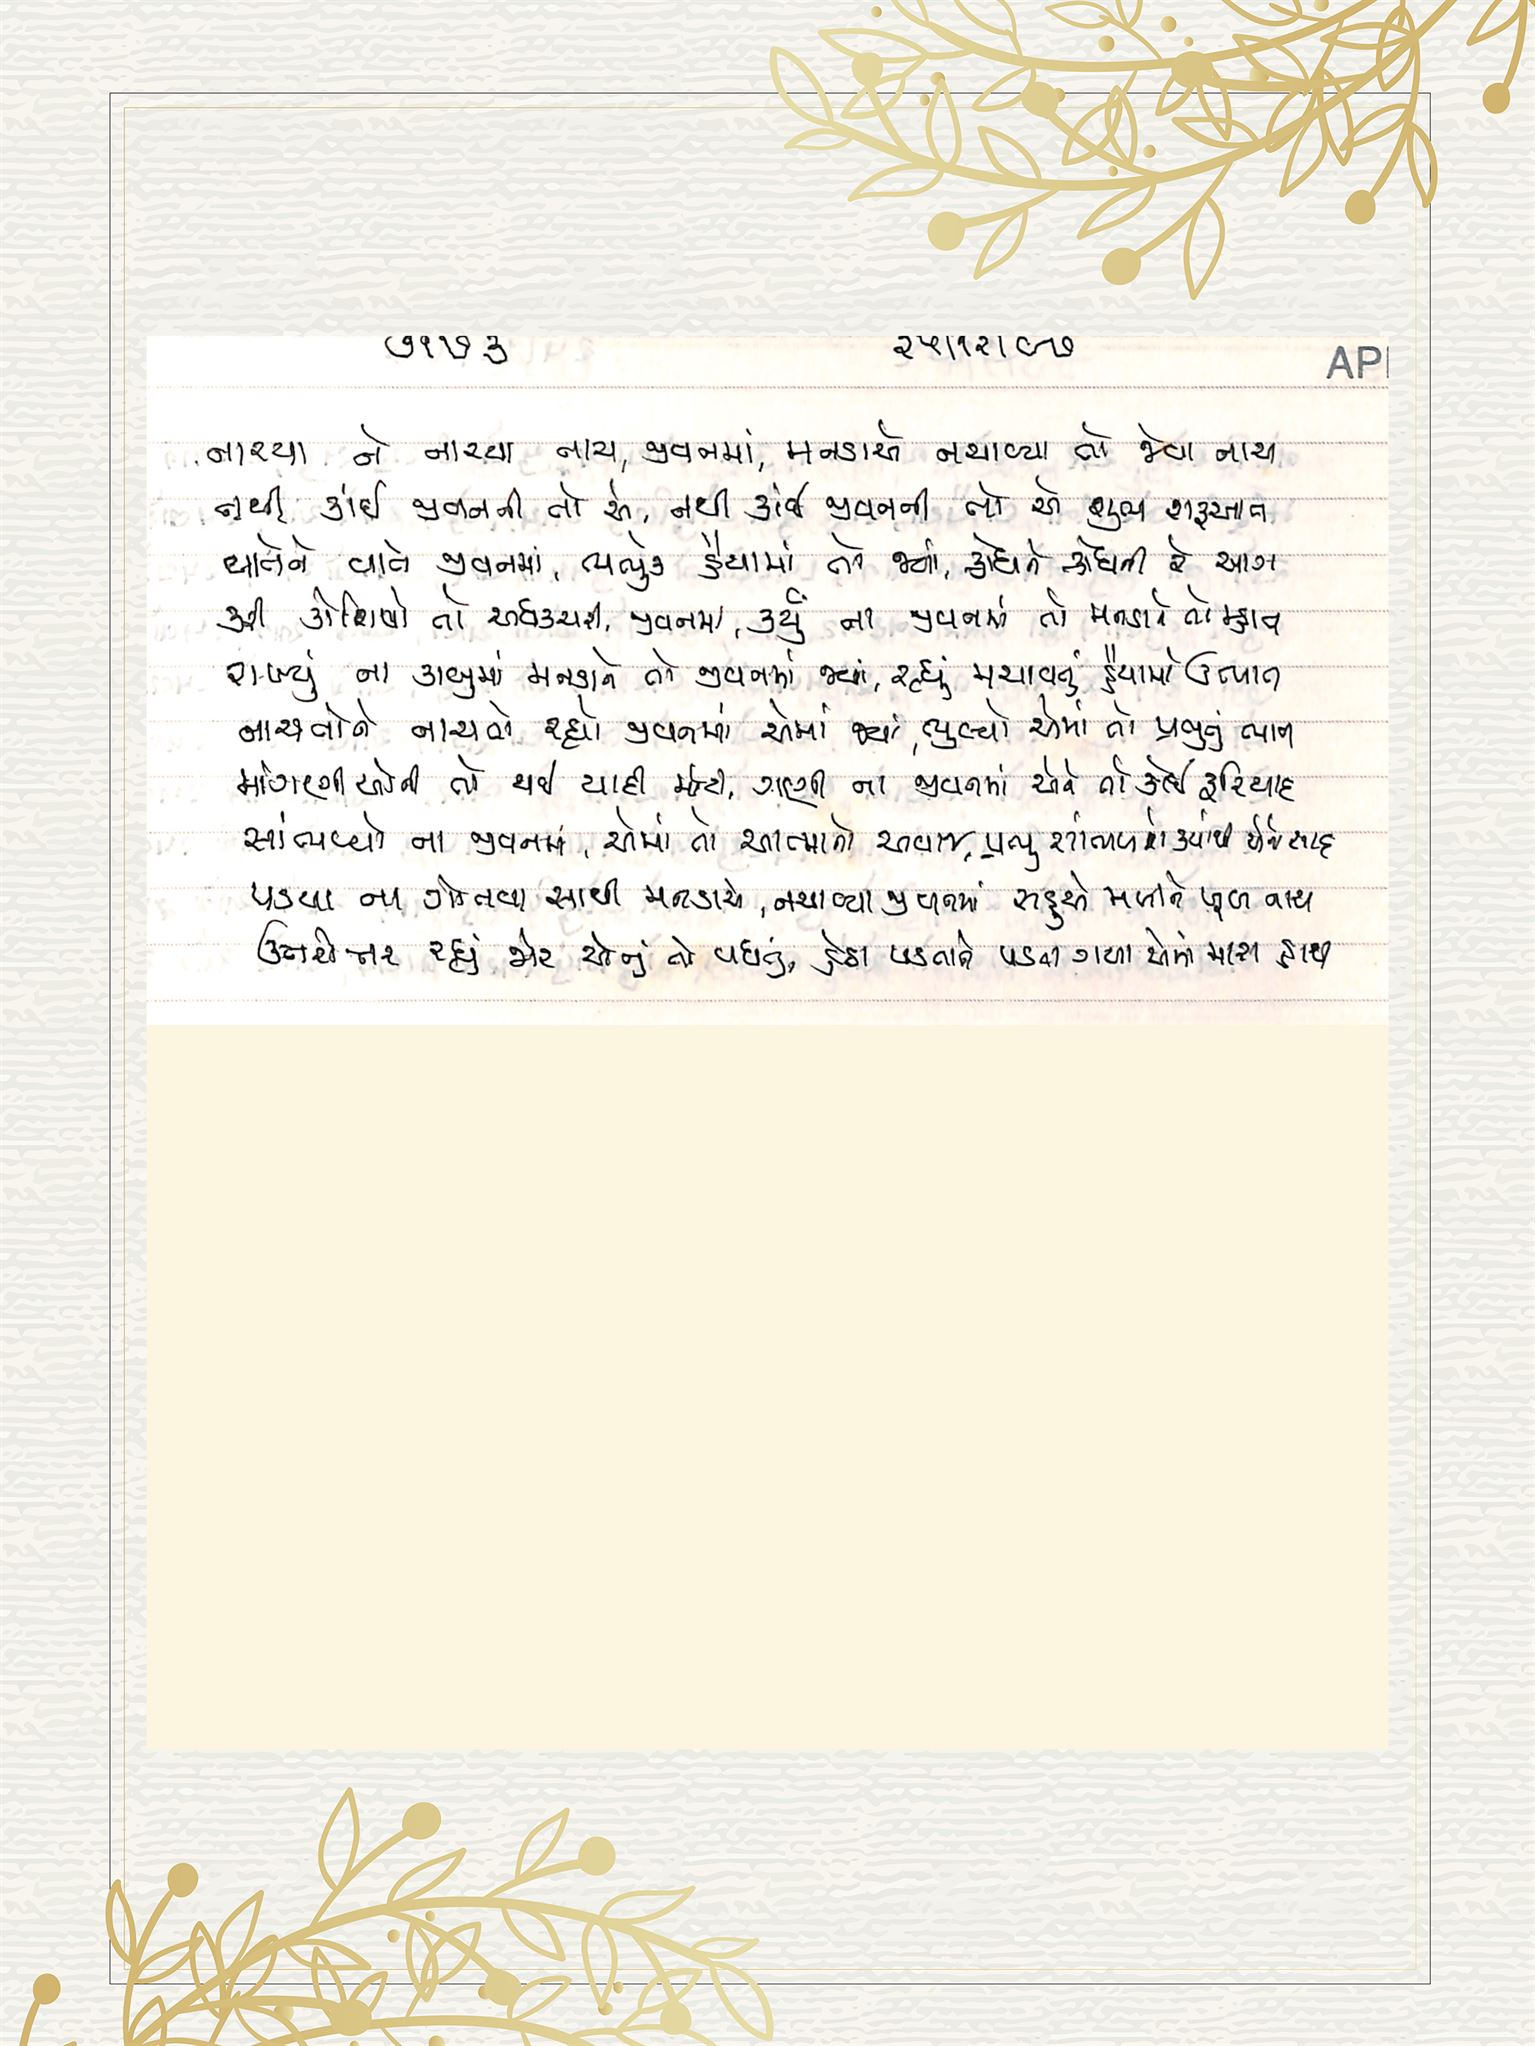 ૭૧૭૩ ૨૫/૧૨/૯૭ AP
નાચ્યા ને નાચ્યા નાચ, જીવનમાં, મનડાએ નચાવ્યા તો જેવા નાચ
નથી કાંઈ જીવનની તો એ, નથી કાંઈ જીવનની તો એ શુભ શરૂઆત
વાતેને વાતે જીવનમાં, ભભુકે હૈયામાં તો જ્યાં, ક્રોધને ક્રોધની રે આગ
કરી કોશિશો તો અધકચરી, જીવનમાં, કર્યું ના જીવનમાં તો મનડાને તો
રાખ્યું ના કાબુમાં મનડાને તો જીવનમાં જ્યાં, રહ્યું મચાવતું હૈયામાં ઉત્પાત
નાચતોને નાચતો રહ્યો જીવનમાં એમાં જ્યાં, ભુલ્યો એમાં તો પ્રભુનું ભાન
માંગણી એની તો થઈ યાદી મોટી, ગણી ના જીવનમાં એને તો કોઈ ફરિયાદ
સાંભળ્યો ના જીવનમાં, એમાં તો આત્માનો અવાજ, પ્રભુ સાંભળશે ક્યાંથી એને સાદ
પડયા ના ગોતવા સાથી મનડાએ, નચાવ્યા જીવનમાં સહુએ મળીને ખૂબ નાચ
ઉત્તરોત્તર રહ્યું જોર એનું તો વધતું, હેઠા પડતાને પડતા ગયા એમાં મારા હાથ